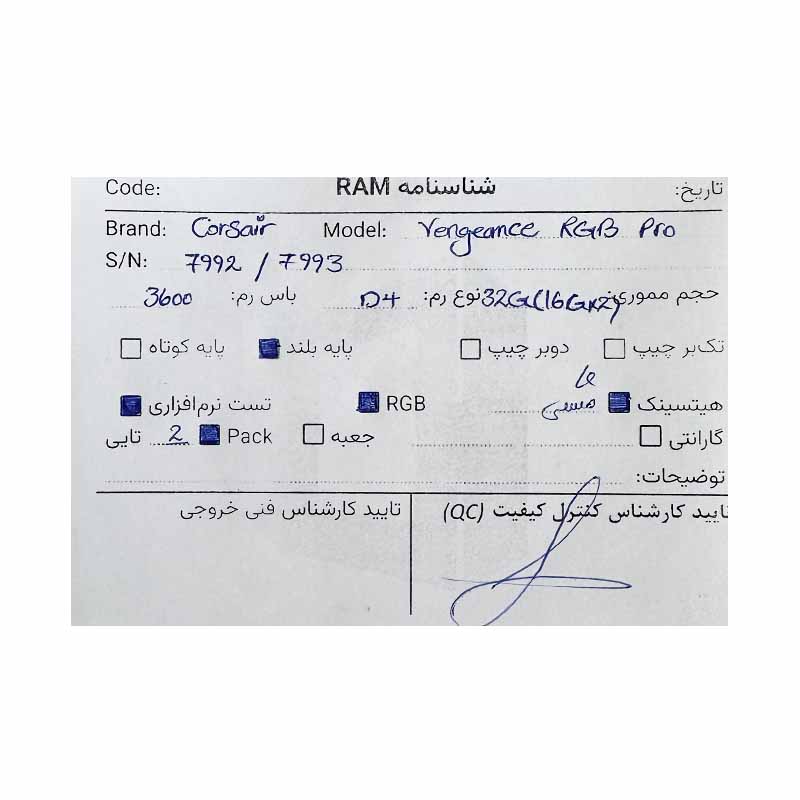 تاریخ: شناسنامه RAM Code:
Brand: Corsair Model: Vengeance RGB Pro
S/N: 7992 / 7993
حجم مموری: 32G(16G×2) نوع رم: D4 باس رم: 3600
تک‌بر چیپ دوبر چیپ پایه بلند پایه کوتاه
هیتسینک RGB تست نرم‌افزاری
گارانتی جعبه Pack 2 تایی
توضیحات:
تایید کارشناس کنترل کیفیت (QC) تایید کارشناس فنی خروجی